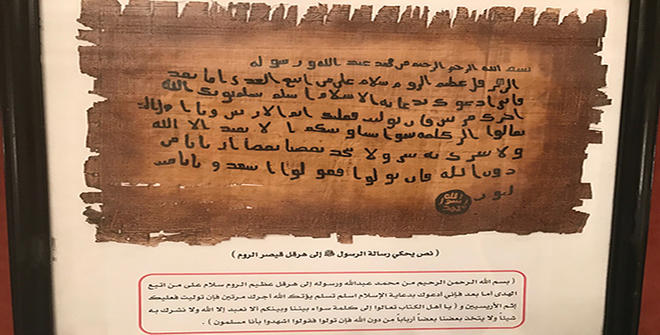 بسم الله الرحمن الرحيم من محمد عبد الله ورسوله
الى هرقل عظيم الروم سلام على من اتبع الهدى اما بعد
فانى ادعوك بدعاية الاسلام اسلم تسلم يوتك الله
اجرك مرتين فان توليت فعليك اثم الاريسين ويا
تعالوا الى كلمة سوا بيننا وبينكم ا لا نعبد الا الله
ولا نشرك به شى ولا يتخذ بعضنا بعضا اربابا من
دون الله فان تولوا فقولوا اشهدوا بانا مسلمون
الله
رسول
محمد
( نص يحكي رسالة الرسول ﷺ إلى هرقل قيصر الروم )
( بسم الله الرحمن الرحيم من محمد عبدالله ورسوله إلى هرقل عظيم الروم سلام على من اتبع
الهدى اما بعد فإني أدعوك بدعاية الإسلام اسلم تسلم يؤتك الله اجرك مرتين فإن توليت فعليك
إثم الأريسيين و ( يا أهل الكتاب تعالوا إلى كلمة سواء بيننا وبينكم ألا نعبد إلا الله ولا نشرك به
شيئاً ولا يتخذ بعضنا بعضاً أرباباً من دون الله فإن تولوا فقولوا اشهدوا بأنا مسلمون ) .